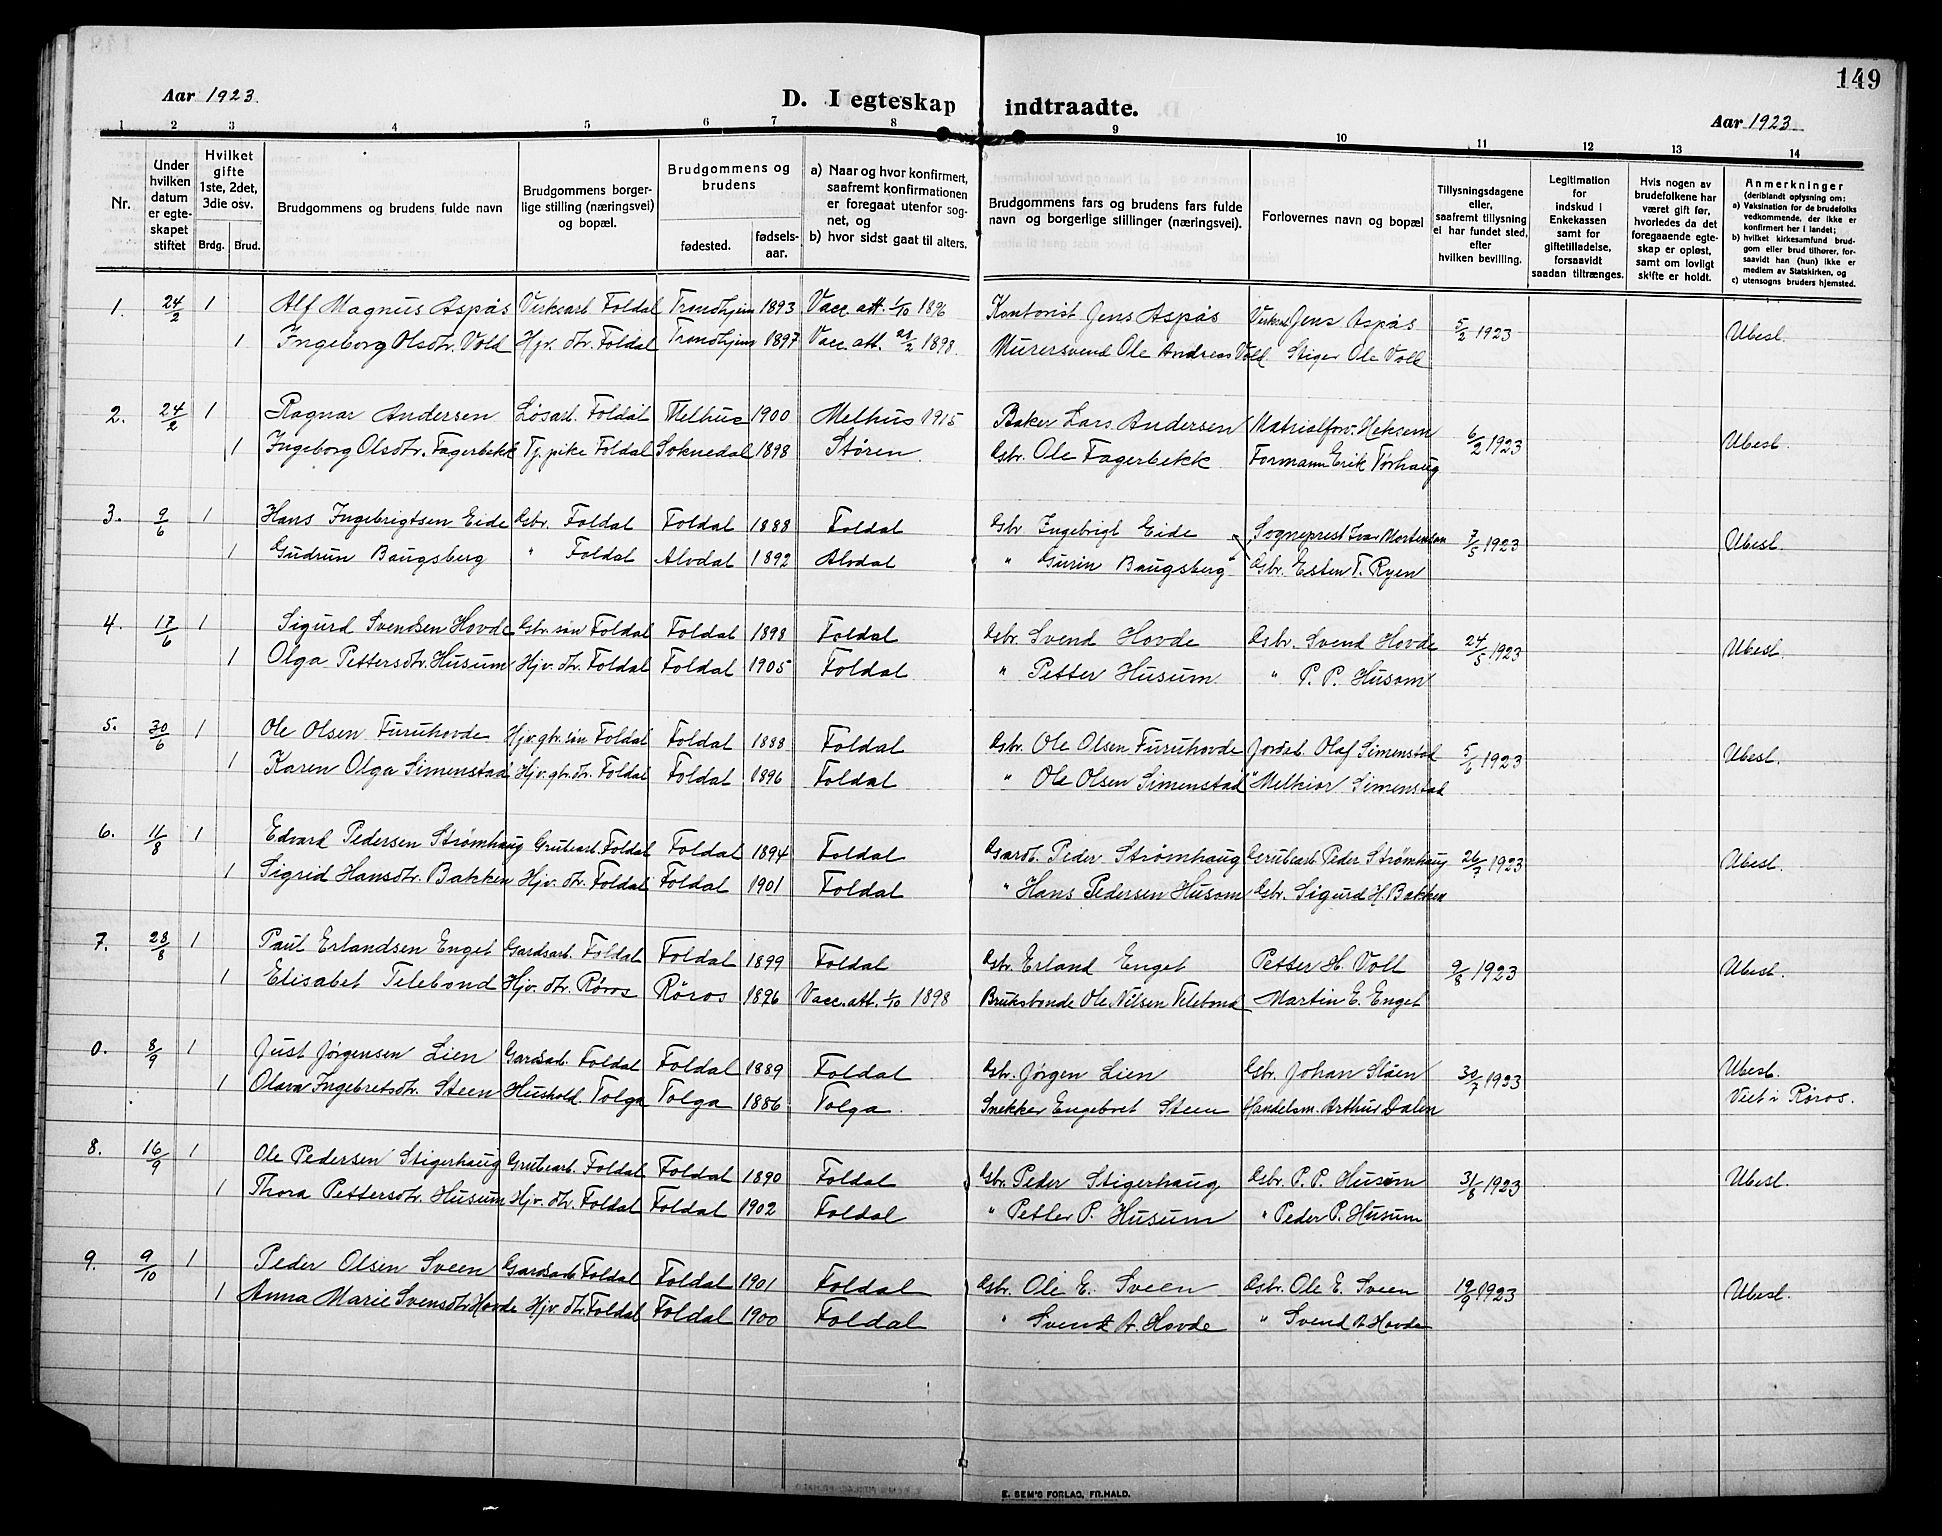 149
Aar 1923.
D. I egteskap indtraadte.
Aar 1923
1 2 3 4 5 6 7 8 9 10 11 12 13 14
Nr.
Under hvilken datum er egteskapet stiftet
Hvilket gifte 1ste, 2det, 3die osv.
Brdg. Brud.
Brudgommens og brudens fulde navn
Brudgommens borgerlige stilling (næringsvei) og bopæl.
Brudgommens og brudens
fødested. fødselsaar.
a) Naar og hvor konfirmert, saafremt konfirmationen er foregaat utenfor sognet, og
b) hvor sidst gaat til alters.
Brudgommens fars og brudens fars fulde navn og borgerlige stillinger (næringsvei).
Forlovernes navn og bopæl
Tillysningsdagene eller, saafremt tillysning ei har fundet sted, efter hvilken bevilling.
Legitimation for indskud i Enkekassen samt for giftetilladelse, forsaavidt saadan tiltrænges.
Hvis nogen av brudefolkene har været gift før, hvorledes da det foregaaende egteskap er opløst, samt om lovligt skifte er holdt.
Anmerkninger (deriblandt oplysning om:
a) Vaksination for de brudefolks vedkommende, der ikke er konfirmert her i landet;
b) hvilket kirkesamfund brudgom eller brud tilhører, forsaavidt han (hun) ikke er medlem av Statskirken, og
c) utensogns bruders hjemsted.
1. 24/2 1 Alf Magnus Aspås Verksarb. Foldal Trondhjem 1893 Vacc. att. 1/10 1896 Kontorist Jens Aspås Verksarb. Jens Aspås 5/2 1923 Ubesl.
1 Ingeborg Olsdtr. Vold Hjv. dtr. Foldal Trondhjem 1897 Vacc. att. 21/2 1898. Murersvend Ole Andreas Voll Stiger Ole Voll
2. 24/2 1 Ragnar Andersen Løsarb. Foldal Melhus 1900 Melhus 1915 Baker Lars Andersen Matrialforv. Heksem 6/2 1923 Ubesl.
1 Ingeborg Olsdtr. Fagerbekk Tj. pike Foldal Soknedal 1898 Støren Gbr. Ole Fagerbekk Formann Erik Tørhaug
3. 9/6 1 Hans Ingebrigtsen Eide Gbr. Foldal Foldal 1888 Foldal Gbr Ingebrigt Eide Sogneprest Ivar Mortenson 7/5 1923 Ubesl.
1 Gudrun Baugsberg " Foldal Alvdal 1892 Alvdal " Gurin Baugsberg Gbr. Esten T. Ryen
4. 17/6 1 Sigurd Svendsen Hovde Gbr. søn Foldal Foldal 1898 Foldal Gbr. Svend Hovde Gbr. Svend Hovde 24/5 1923 Ubesl.
1 Olga Pettersdtr. Husum Hjv. dtr. Foldal Foldal 1905 Foldal " Petter Husum " P. P. Husom
5. 30/6 1 Ole Olsen Furuhovde Hjv. gbr. søn Foldal Foldal 1888 Foldal Gbr. Ole Olsen Furuhovde Jordeb. Olaf Simenstad 5/6 1923 Ubesl.
1 Karen Olga Simenstad Hjv. gbr. dtr. Foldal Foldal 1896 Foldal " Ole Olsen Simenstad " Melkior Simenstad
6. 11/8 1 Edvard Pedersen Strømhaug Grubearb. Foldal Foldal 1894 Foldal Gardb. Peder Strømhaug Grubearb Peder Strømhaug 26/7 1923 Ubesl.
1 Sigrid Hansdtr. Bakken Hjv. dtr. Foldal Foldal 1901 Foldal " Hans Pedersen Husom Gbr. Sigurd H. Bakken
7. 28/8 1 Paul Erlandsen Enget Gardsarb. Foldal Foldal 1899 Foldal Gbr. Erland Enget Petter H. Voll 9/8 1923 Ubesl.
1 Elisabet Telebond Hjv. dtr. Røros Røros 1896 Vacc. att. 1/10 1898 Bruksbonde Ole Nilsen Telebond Martin E. Enget
0. 8/9 1 Just Jørgensen Lien Gardsarb. Foldal Foldal 1889 Foldal Gbr. Jørgen Lien Gbr. Johan Støen 30/7 1923 Ubesl.
1 Olava Ingebretsdtr. Steen Hushold. Tolga Tolga 1886 Tolga. Snekker Engebret Steen Handelsm. Arthur Dalen Viet i Røros.
8. 16/9 1 Ole Pedersen Stigerhaug Grubearb. Foldal Foldal 1890 Foldal Gbr. Peder Stigerhaug Gbr. P. P. Husum 31/8 1923 Ubesl.
1 Thora Pettersdtr. Husum Hjv. dtr. Foldal Foldal 1902 Foldal " Petter P. Husum " Peder P. Husum
9. 9/10 1 Peder Olsen Sveen Gardsarb Foldal Foldal 1901 Foldal Gbr. Ole E. Sveen Gbr. Ole E. Sveen 19/9 1923 Ubesl.
1 Anna Marie Svensdtr. Hovde Hjv. dtr. Foldal Foldal 1900 Foldal " Svend A. Hovde " Svend A Hovde
E. SEM'S FORLAG, FR.HALD.